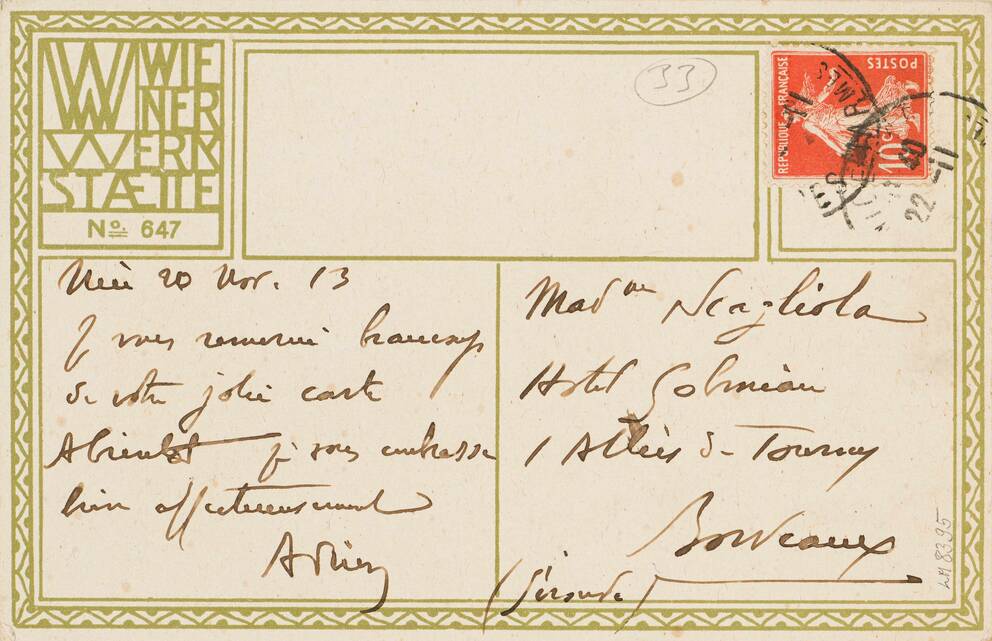 WIE
NER
WERK
STAETTE
No. 647
33
REPUBLIQUE FRANÇAISE
POSTES
10c
22 -11
20 Nov. 13
Je vous remercie beaucoup
de votre jolie carte
A bientôt je vous embrasse
bien affectueusement
Adrien
Madme Scagliola
Hotel
1 Allées de Tourny
Bordeaux
(Gironde)
LM 8395